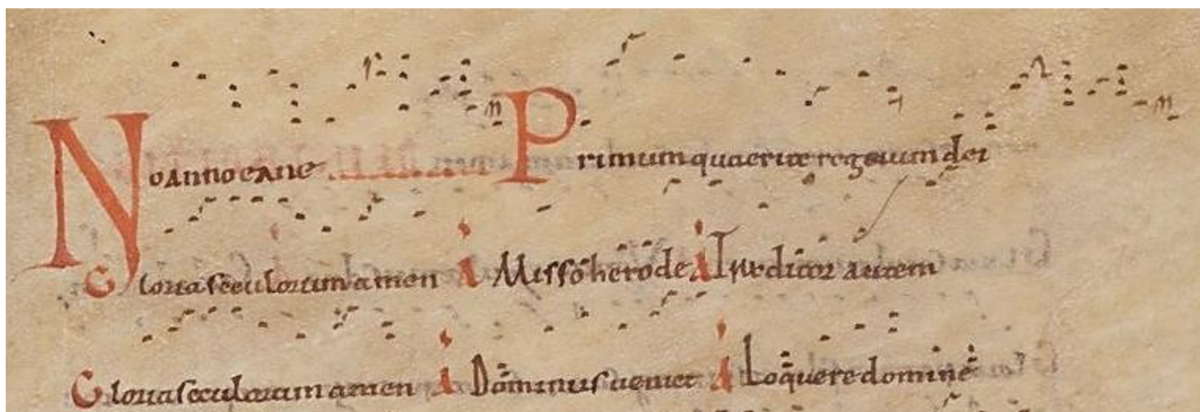 Noannoeane Primum quaerite regnum dei
Gloria seculorum amen A Misso herode A Interdicor autem
Gloria seculorum amen A Dominus veniet A Loquere domine